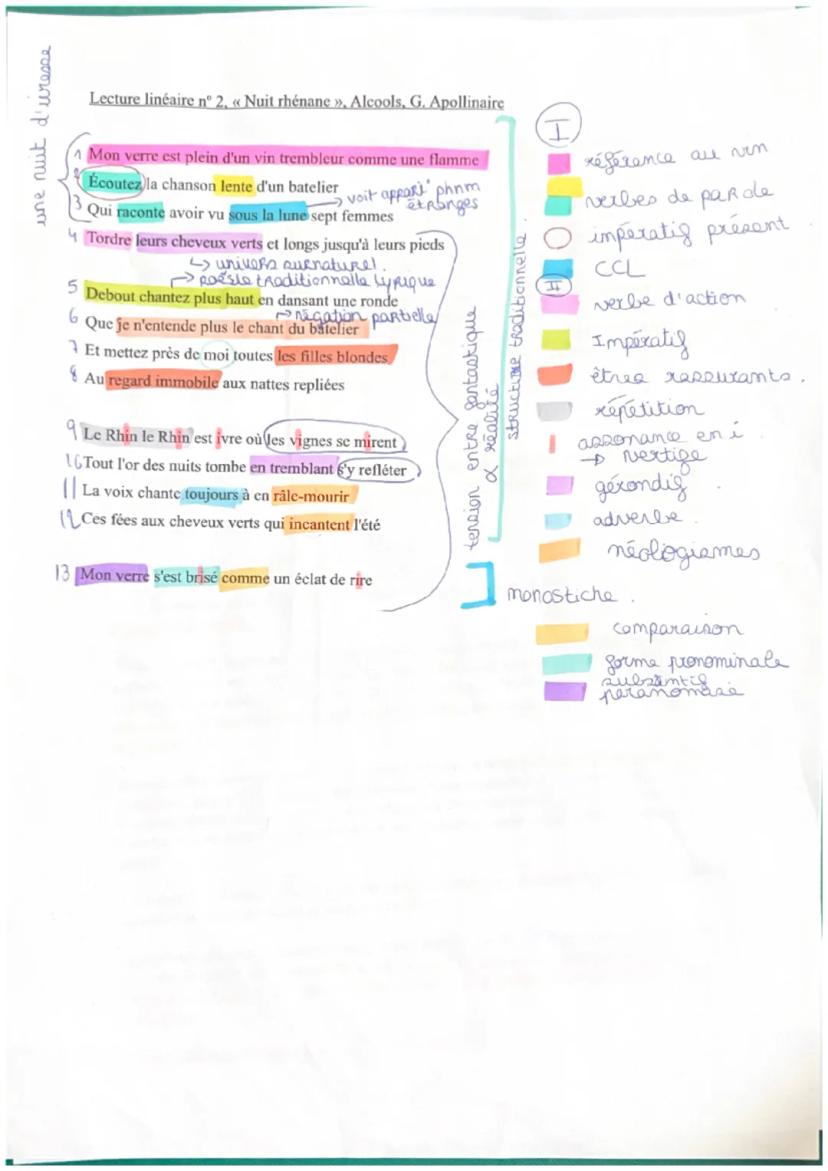 une nuit d'ivresse
Lecture linéaire n° 2, « Nuit rhénane », Alcools, G. Apollinaire
1 Mon verre est plein d'un vin trembleur comme une flamme
2 Écoutez la chanson lente d'un batelier
→ voit appart° phnm étranges
3 Qui raconte avoir vu sous la lune sept femmes
4 Tordre leurs cheveux verts et longs jusqu'à leurs pieds
↳ univers surnaturel.
→ poésie traditionnelle lyrique
5 Debout chantez plus haut en dansant une ronde
→ négation partielle
6 Que je n'entende plus le chant du batelier
7 Et mettez près de moi toutes les filles blondes
8 Au regard immobile aux nattes repliées
9 Le Rhin le Rhin est ivre où les vignes se mirent
10 Tout l'or des nuits tombe en tremblant s'y refléter
11 La voix chante toujours à en râle-mourir
12 Ces fées aux cheveux verts qui incantent l'été
13 Mon verre s'est brisé comme un éclat de rire
tension entre fantastique & réalité
structure traditionnelle.
monostiche.
I
référence au vin
verbes de parole
impératif présent
CCL
II
verbe d'action
Impératif
êtres rassurants.
répétition
assonance en i
→ vertige
gérondif
adverbe
néologismes
comparaison
forme pronominale
substantif
paranomase